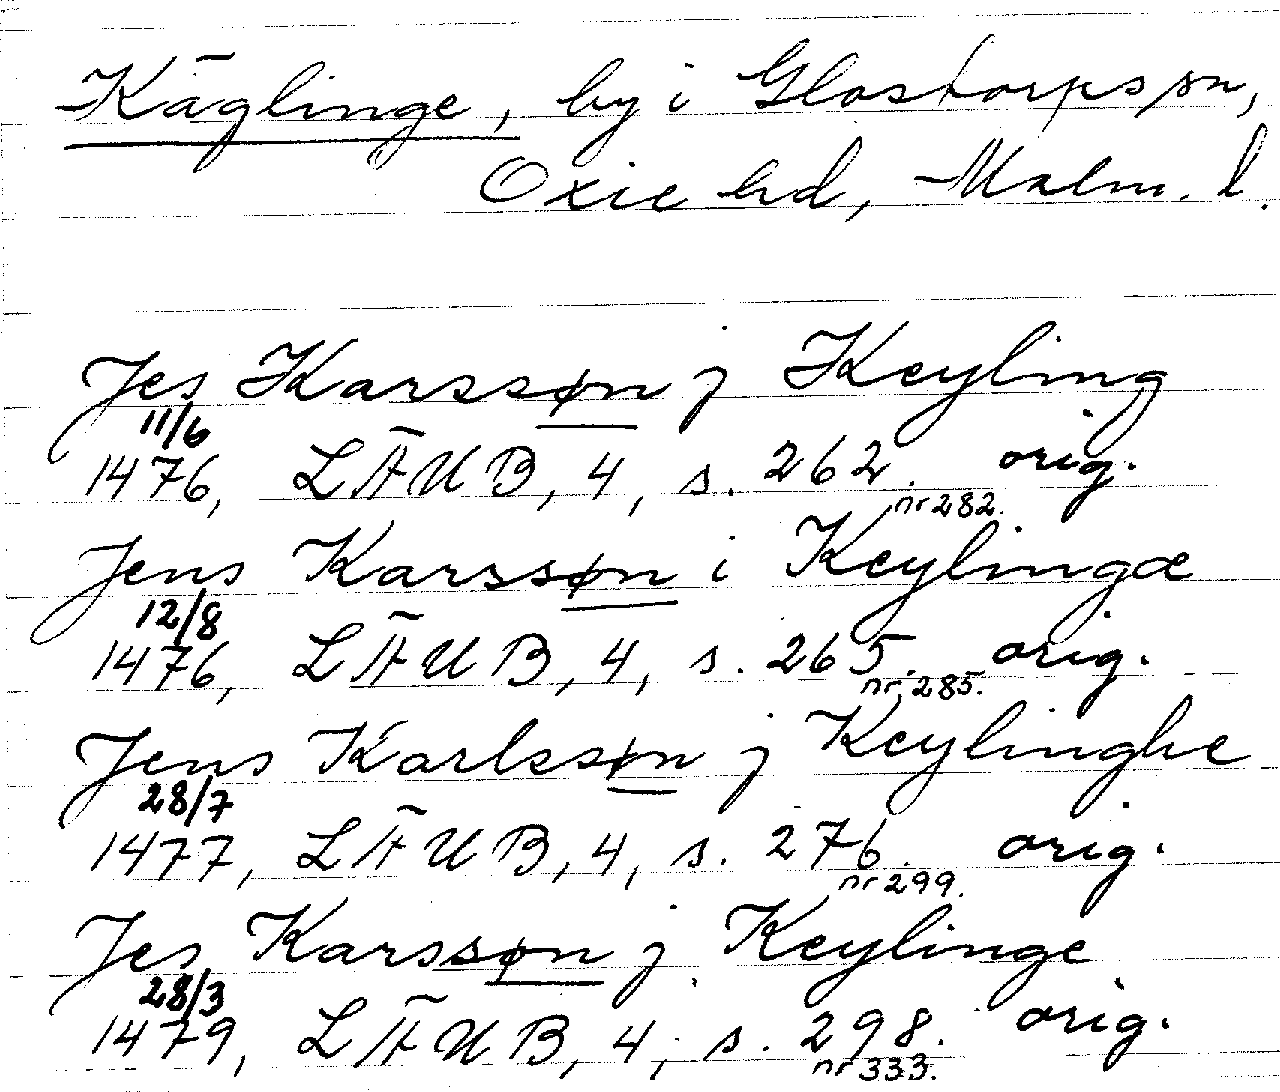 Käglinge, by i Glostorps sn,
Oxie hd, Malm. l.
Jes Karssøn j Keyling
11/6
1476, LÄUB, 4, s. 262. orig.
nr 282.
Jens Karssøn i Keylingæ
12/8
1476, LÄUB, 4, s. 265. orig.
nr. 285.
Jens Karlssøn j Keylinghe
28/7
1477, LÄUB, 4, s. 276. orig.
nr 299.
Jes Karssøn j Keylinge
28/3
1479, LÄUB, 4, s. 298. orig.
nr 333.